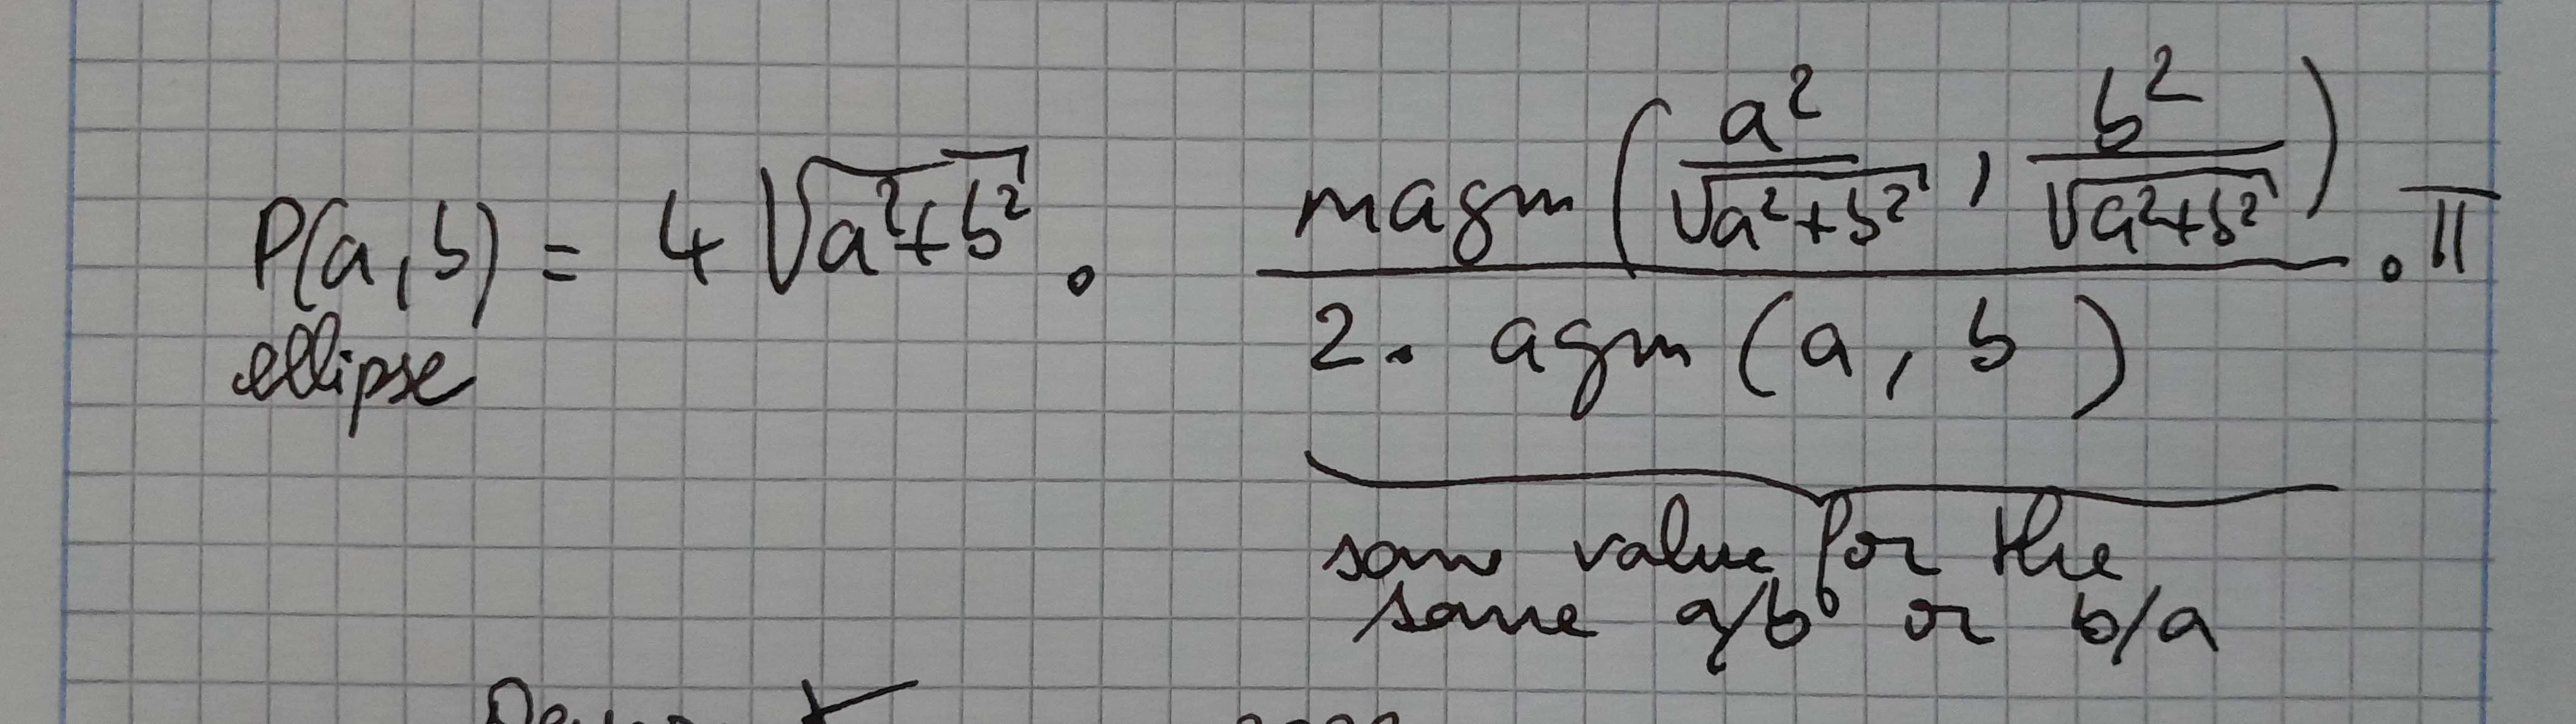 P(a,b) = 4 √(a²+b²) · magm(a²/√(a²+b²), b²/√(a²+b²)) / 2. agm(a, b) · π
ellipse
same value for the
same a/b or b/a